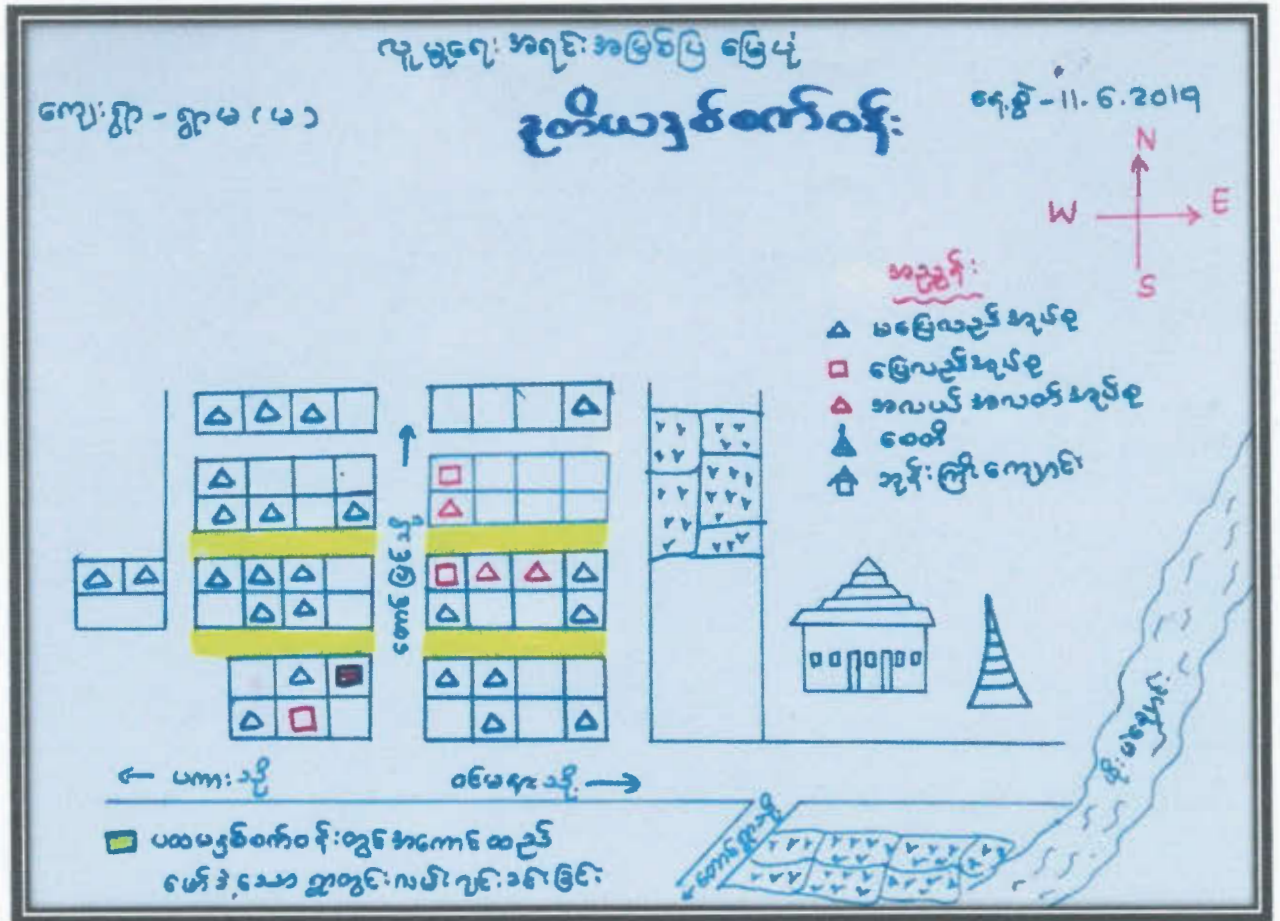 လူမှုရေး အရင်းအမြစ်ပြ မြေပုံ
ကျေးရွာ - ရွာမ (မ)
ဒုတိယနှစ်စက်ဝန်း
နေ့စွဲ - 11.6.2019
N
W
E
S
အညွှန်း
မပြေလည်အုပ်စု
ပြေလည်အုပ်စု
အလယ်အလတ်အုပ်စု
စေတီ
ဘုန်းကြီးကျောင်း
တောင်မြို့သို့
← ပကားသို့
ဝင်မရားသို့ →
ပထမနှစ်စက်ဝန်းတွင်အကောင်ထည်
ဖော်ခဲ့သောရွာတွင်းလမ်းလျင်းခင်းခြင်း